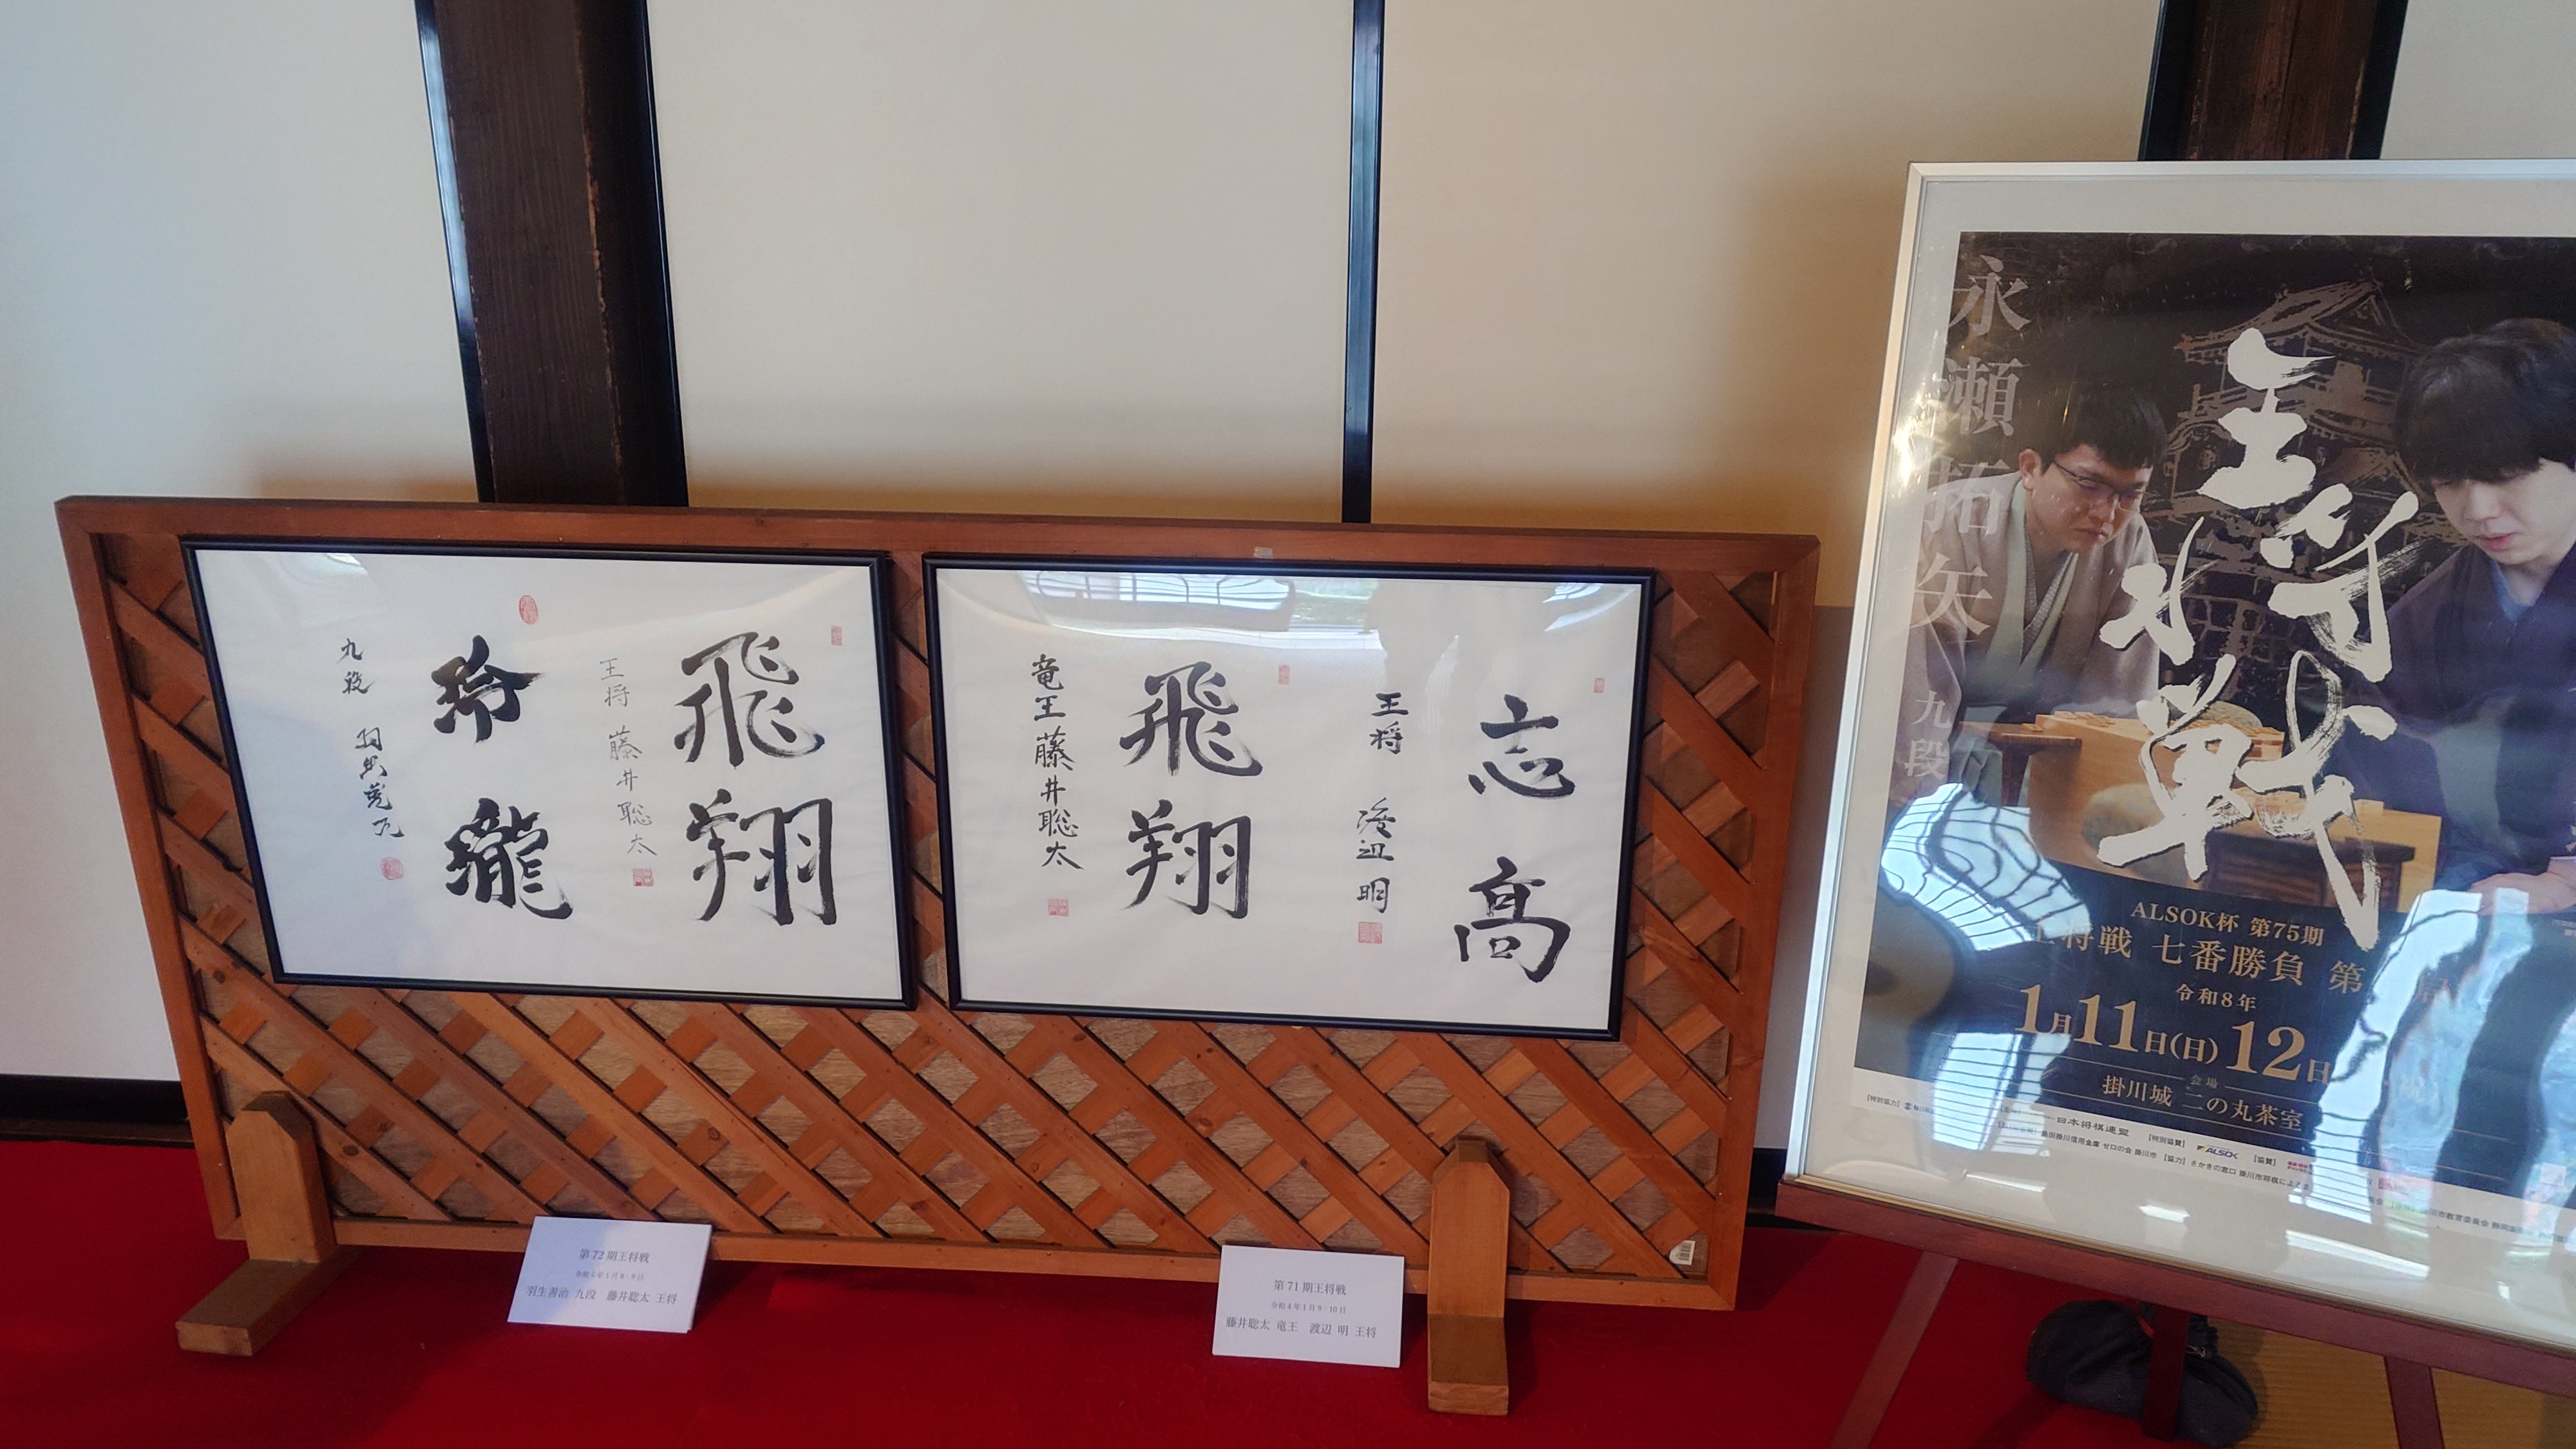 飛翔
王将 藤井聡太
玲瓏
九段 羽生善治
忘高
王将 渡辺明
飛翔
竜王 藤井聡太
第72期王将戦
令和5年1月8・9日
羽生善治 九段 藤井聡太 王将
第71期王将戦
令和4年1月9・10日
藤井聡太 竜王 渡辺 明 王将
永瀬拓矢 九段
王将戦
ALSOK杯 第75期
王将戦 七番勝負 第
令和8年
1月11日(日)12日
会場
掛川城 二の丸茶室
【特別協力】
日本将棋連盟 【特別協賛】 ALSOK 【協賛】
島田掛川信用金庫 ゼロの会 掛川市 【協力】 さかきの窓口